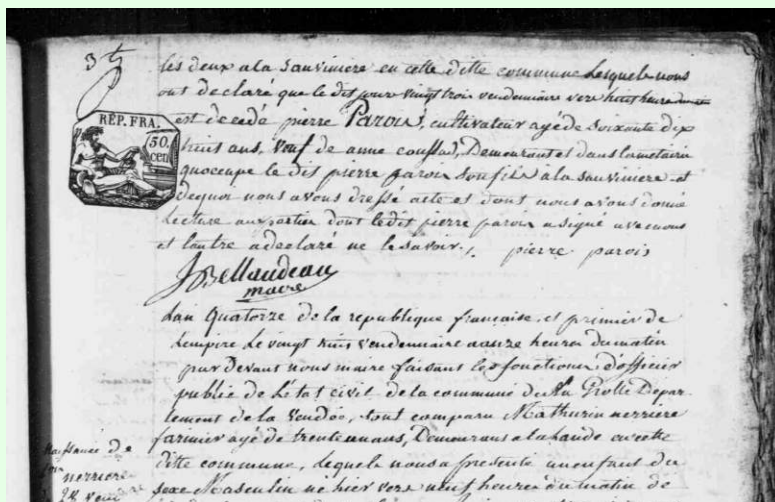 3 f
les deux a la Sauviniere en cette ditte commune Lesquels nous
ont declaré que le dit jour vingt trois vendemiaire vers huit heure
est decedé pierre Parois, cultivateur agé de Soixante dix
huit ans, veuf de anne coussad, Demourant et dans la metairie
quoccupe le dit pierre parois son fils a la Sauviniere et
dequoi nous avons dressé acte et dont nous avons donné
Lecture aux parties dont le dit pierre parois a signé avec nous
et lautre a declaré ne le Savoir, pierre parois
RÉP. FRA.
50.
cen
Bellaudeau
maire
Lan Quatorze de la republique française, et premier de
Lempire Le vingt huit vendemiaire a onze heures du matin
par Devant nous maire faisant les fonctions d'officier
public de Létat civil de la commune de Grolle Depar-
tement de la Vendée, Sont comparu Mathurin nerriere
farmier agé de trente un ans, Demourant a la Lande en cette
ditte commune, Lequel nous a présenté un enfant du
Sexe Masculin né hier vers neuf heures du matin de
Naissance de
nerriere